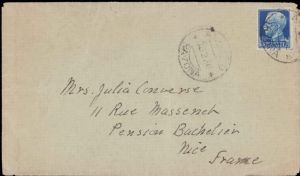 Mrs. Julia Converse
11 Rue Massenet
Pension Bachelier
Nice
France